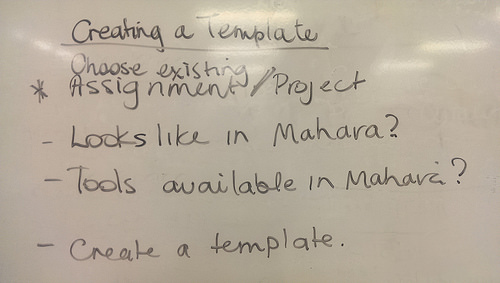 Creating a Template
Choose existing
* Assignment/Project
- Looks like in Mahara?
- Tools available in Mahara?
- Create a template.